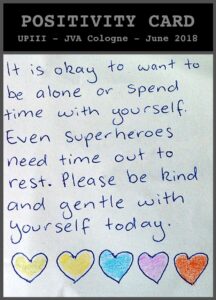 POSITIVITY CARD
UPIII - JVA Cologne - June 2018
It is okay to want to
be alone or spend
time with yourself.
Even superheroes
need time out to
rest. Please be kind
and gentle with
yourself today.